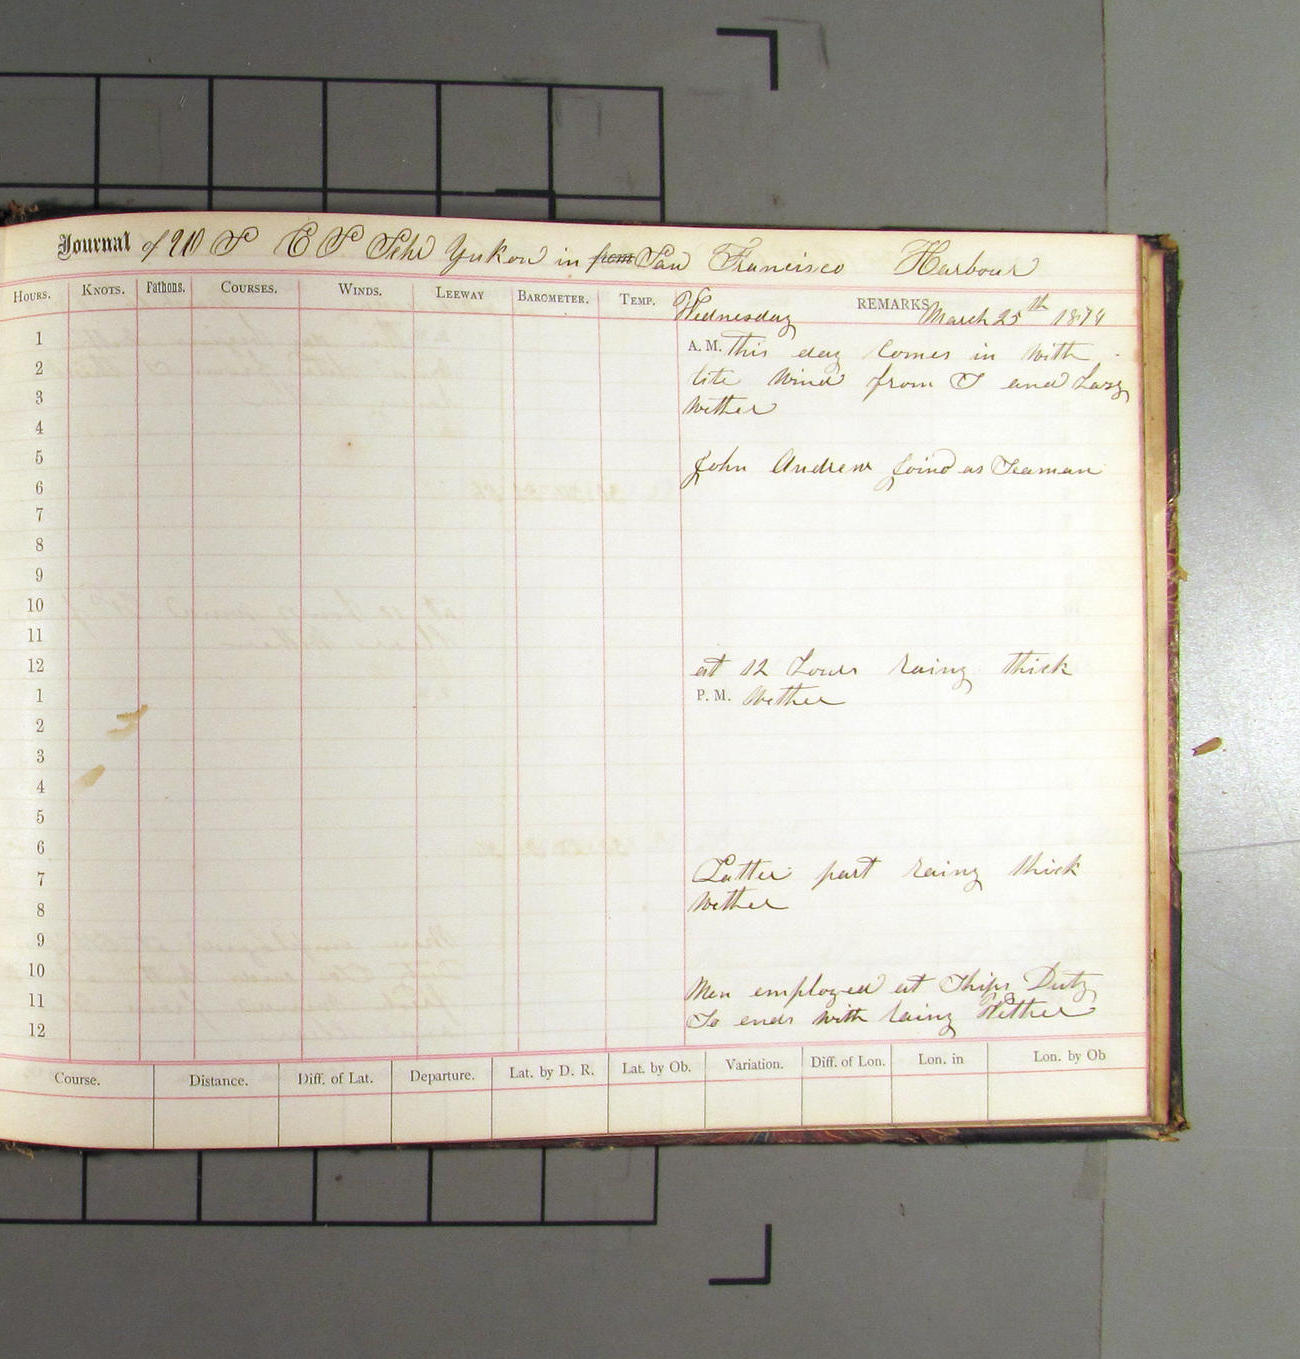 Journal of U S C S Schr Yukon in from San Francisco Harbour
HOURS. KNOTS. Fathoms. COURSES. WINDS. LEEWAY BAROMETER. TEMP. REMARKS
Wednesday March 25th 1874
1 A. M. this day Comes in with
2 lite wind from S and Hazy
3 wether
4
5 John Andrew Joind as Seaman
6
7
8
9
10
11
12 at 12 Hours raing thick
1 P. M. wether
2
3
4
5
6
7 Latter part raing thick
8 wether
9
10
11 Men employed at Ships Duty
12 So ends with raing Wether
Course. Distance. Diff. of Lat. Departure. Lat. by D. R. Lat. by Ob. Variation. Diff. of Lon. Lon. in Lon. by Ob